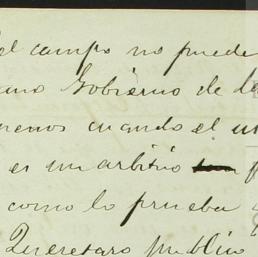 el campo no puede
uno Gobierno de
menos cuando el
es un arbitrio
como lo prueba
Queretaro publico